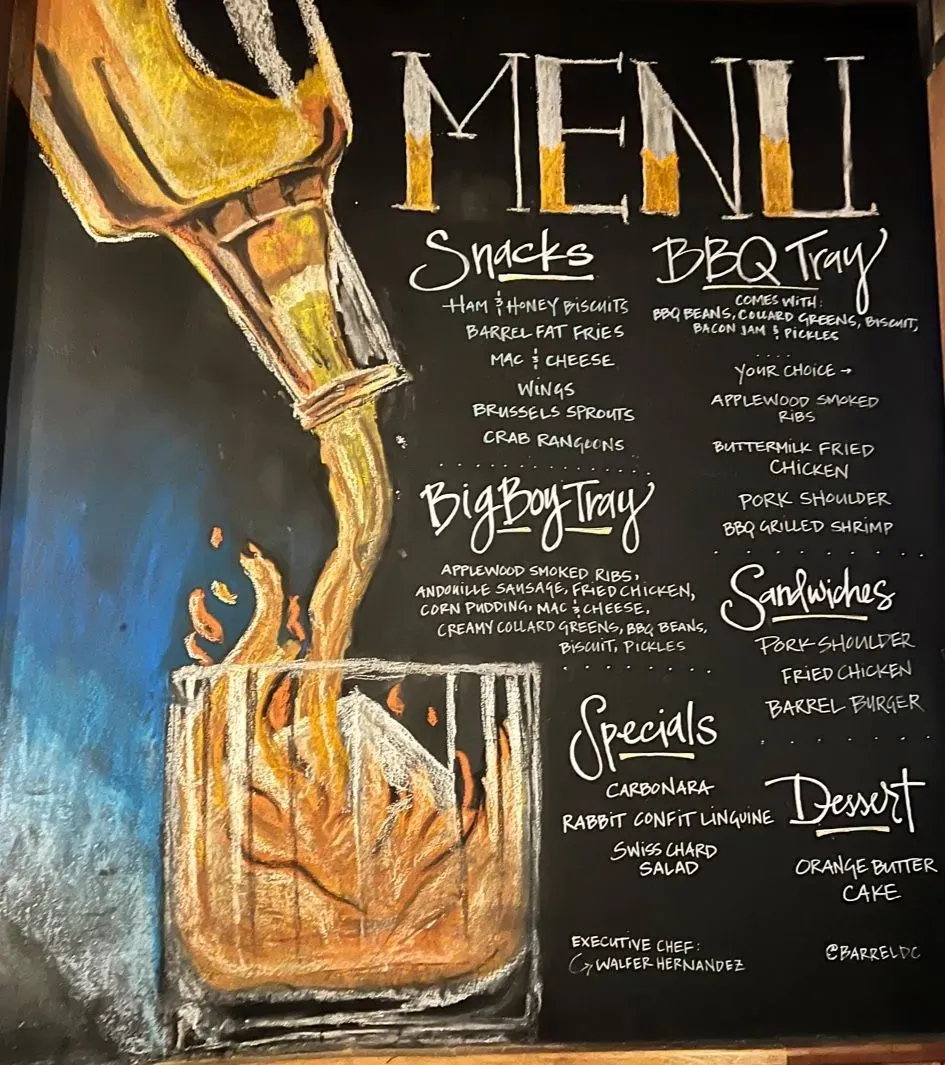 MENU
Snacks
HAM & HONEY BISCUITS
BARREL FAT FRIES
MAC & CHEESE
WINGS
BRUSSELS SPROUTS
CRAB RANGOONS
BBQ Tray
COMES WITH:
BBQ BEANS, COLLARD GREENS, BISCUIT,
BACON JAM & PICKLES
YOUR CHOICE →
APPLEWOOD SMOKED
RIBS
BUTTERMILK FRIED
CHICKEN
PORK SHOULDER
BBQ GRILLED SHRIMP
Big Boy Tray
APPLEWOOD SMOKED RIBS,
ANDOUILLE SAUSAGE, FRIED CHICKEN,
CORN PUDDING, MAC & CHEESE,
CREAMY COLLARD GREENS, BBQ BEANS,
BISCUIT, PICKLES
Sandwiches
PORK SHOULDER
FRIED CHICKEN
BARREL BURGER
Specials
CARBONARA
RABBIT CONFIT LINGUINE
SWISS CHARD
SALAD
Dessert
ORANGE BUTTER
CAKE
EXECUTIVE CHEF:
WALFER HERNANDEZ
@BARRELDC